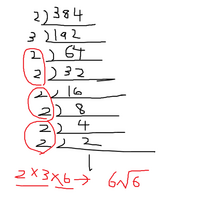 2)384
3)192
2)64
2)32
2)16
2)8
2)4
2)2
1
2×3×6→ 6√6